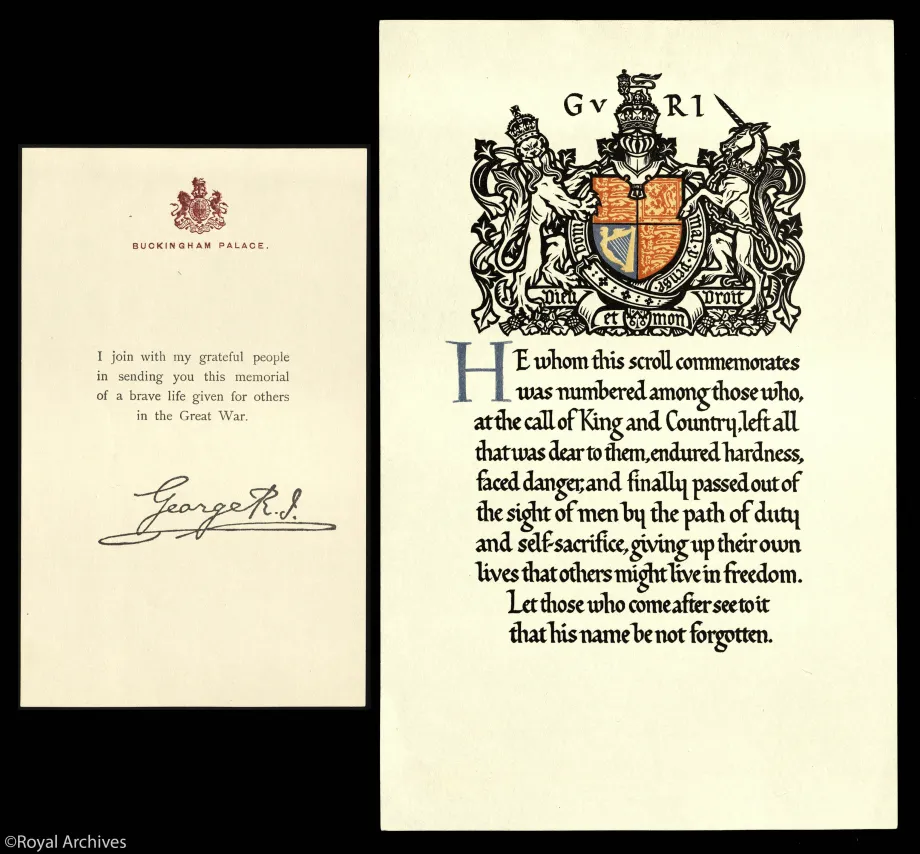 BUCKINGHAM PALACE.
I join with my grateful people
in sending you this memorial
of a brave life given for others
in the Great War.
George R.I.
G V R I
honi mal y pense
Dieu Droit
et mon
HE whom this scroll commemorates
was numbered among those who,
at the call of King and Country, left all
that was dear to them, endured hardness,
faced danger, and finally passed out of
the sight of men by the path of duty
and self-sacrifice, giving up their own
lives that others might live in freedom.
Let those who come after see to it
that his name be not forgotten.
©Royal Archives